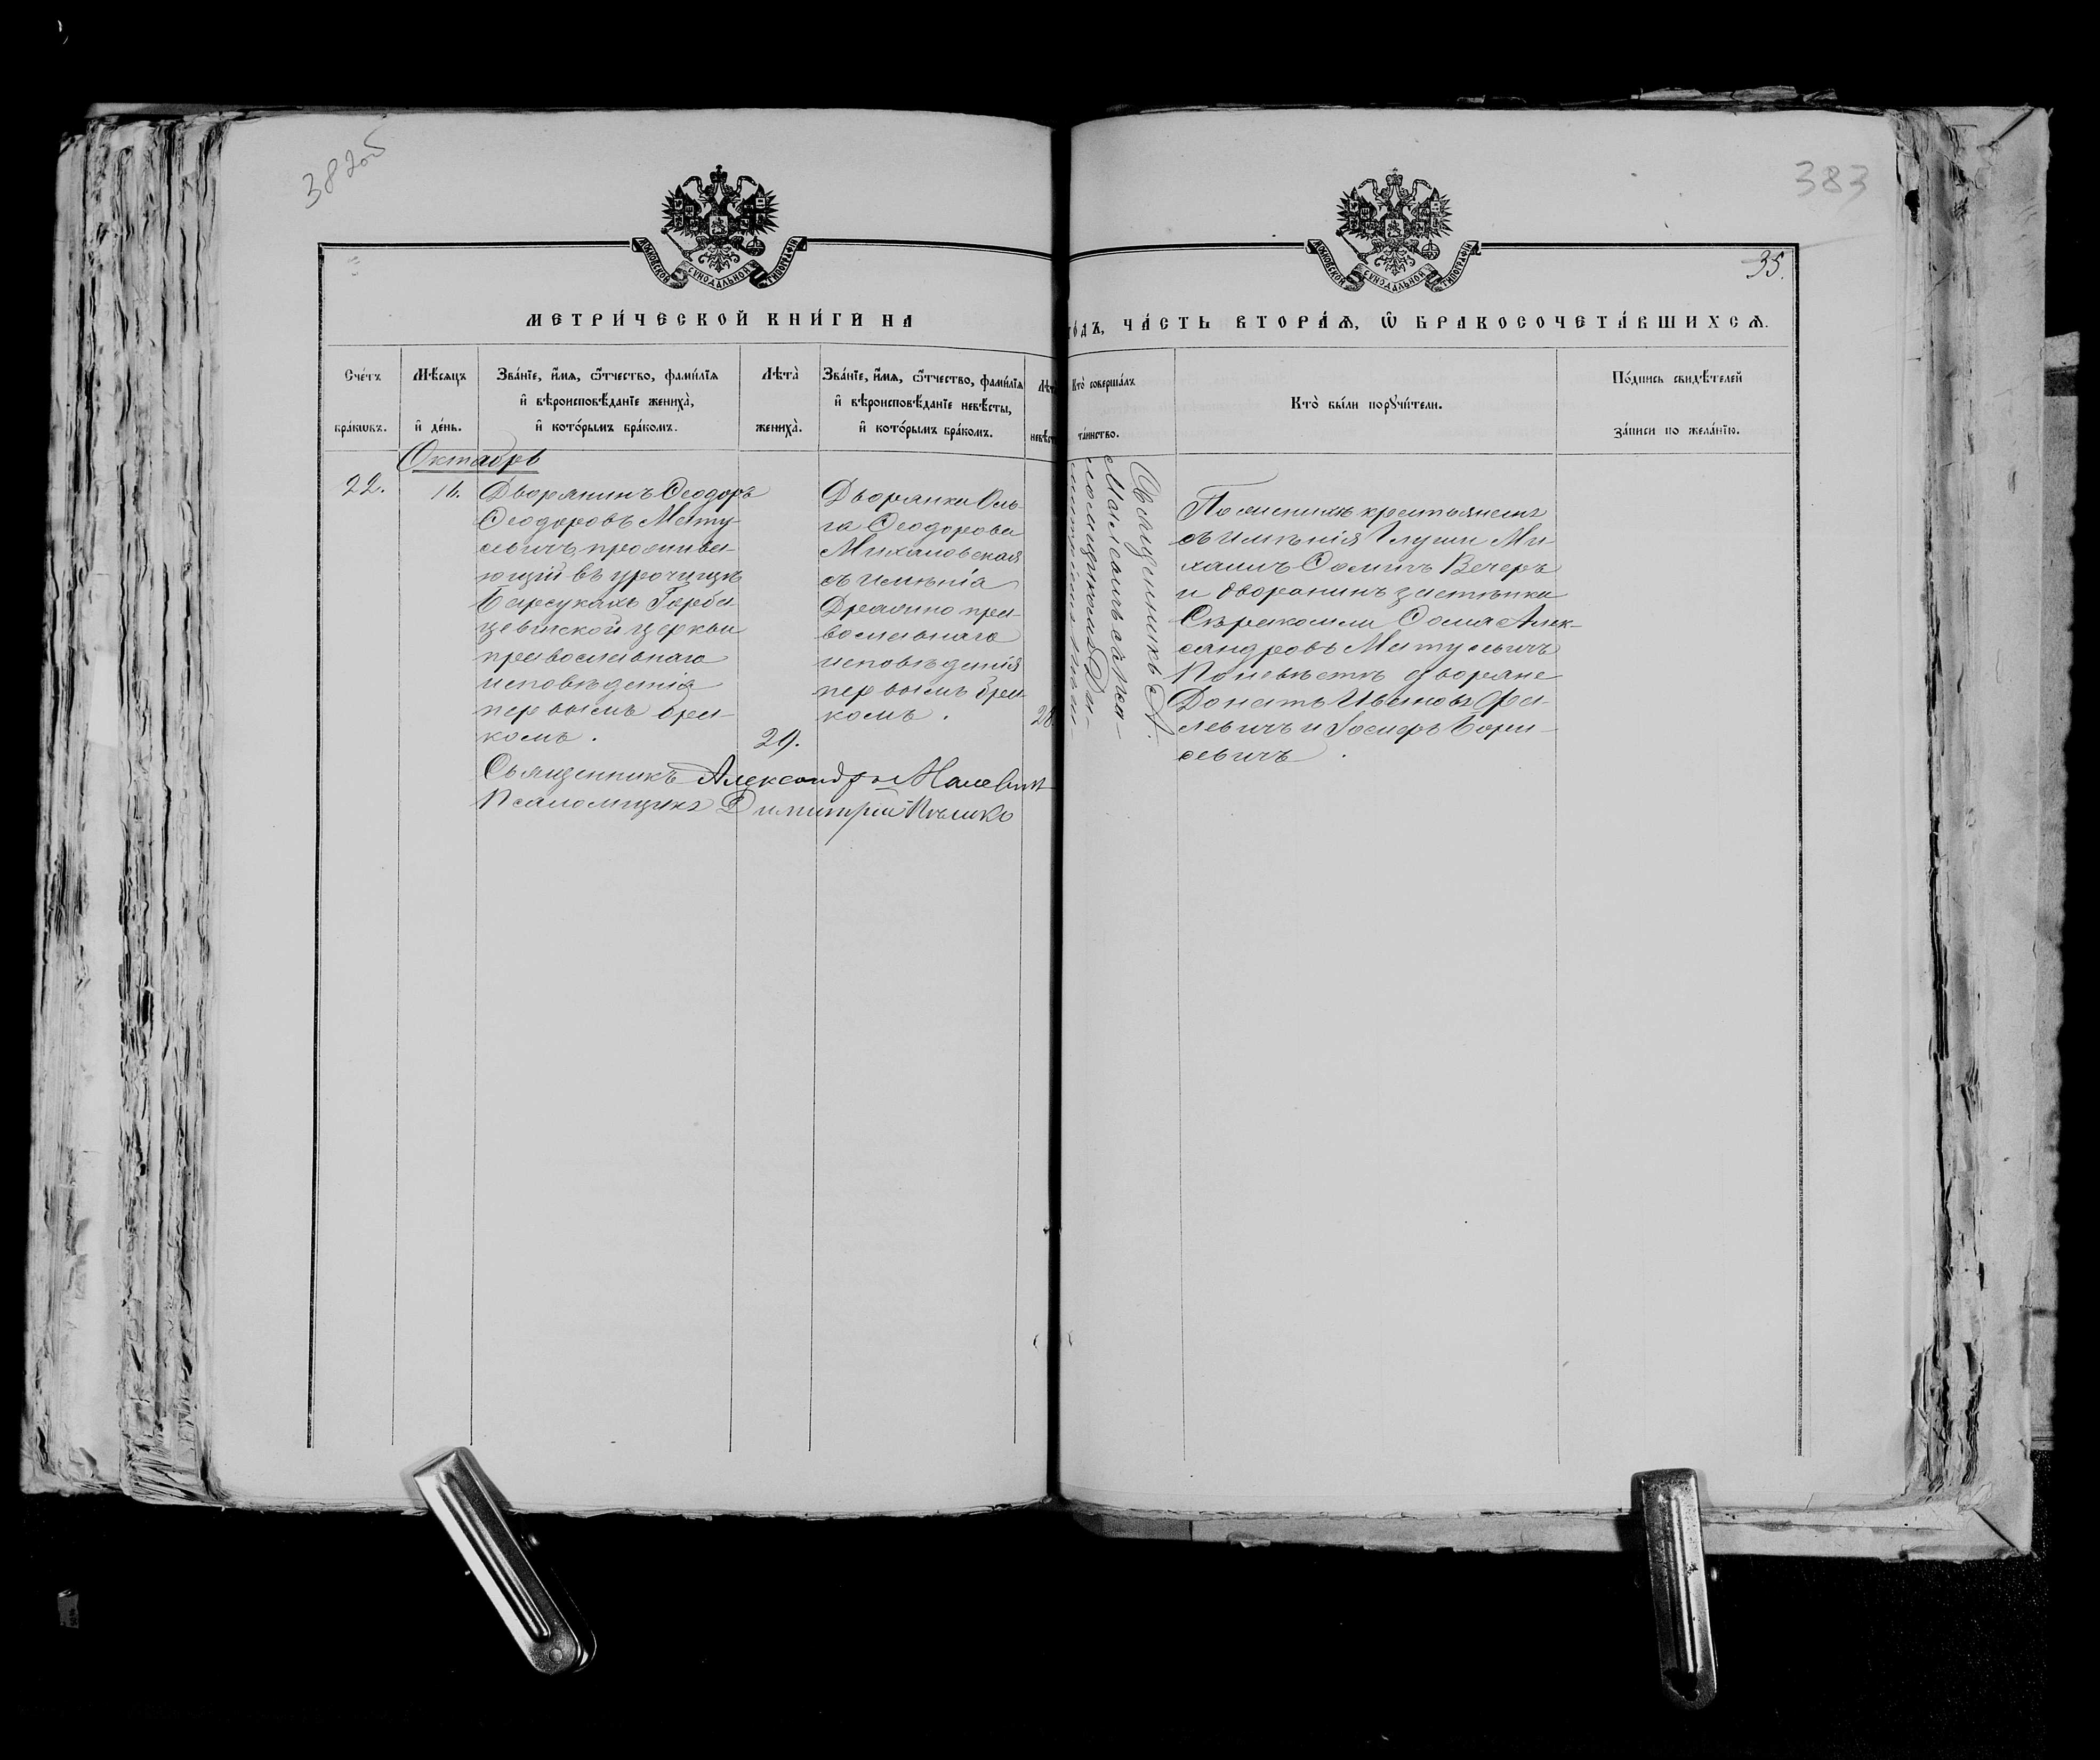 382об
383
35.
МОСКОВСКОЙ СѴНОДАЛЬНОЙ ТИПОГРАФІИ
МОСКОВСКОЙ СѴНОДАЛЬНОЙ ТИПОГРАФІИ
МЕТРИ́ЧЕСКОЙ КНИ́ГИ НА
го́дъ, ЧА́СТЬ ВТОРА́Ѧ, Ѡ҆ БРАКОСОЧЕТА́ВШИХСѦ.
Сче́тъ
бра́кѡвъ.
Мѣ́сѧцъ
и҆ де́нь.
Зва́нїе, и҆́мѧ, ѻ҆́тчество, фами́лїѧ
и҆ вѣроисповѣ́данїе жениха̀,
и҆ кото́рымъ бра́комъ.
Лѣта̀
жениха̀.
Зва́нїе, и҆́мѧ, ѻ҆́тчество, фами́лїѧ
и҆ вѣроисповѣ́данїе невѣ́сты,
и҆ кото́рымъ бра́комъ.
Лѣта̀
невѣ́сты
Кто̀ соверша́лъ
та́инство.
Кто̀ бы́ли порꙋчи́тели.
По́дпись свидѣ́телей
за́писи по жела́нїю.
Октябрь
22.
16.
Дворянинъ Ѳеодоръ
Ѳеодоровъ Мату-
севичъ прожива-
ющій въ урочищѣ
Барсукахъ Горба-
цевичской церкви
православнаго
исповѣданія
первымъ бра-
комъ.
29.
Дворянка Оль-
га Ѳеодорова
Михаловская
съ имѣнія
Дражно пра-
вославнаго
исповѣданія
первымъ бра-
комъ.
28.
Священникъ А.
Малевичъ съ пса-
ломщикомъ Ди-
По женихѣ крестьянинъ
съ имѣнія Глуши Ми
хаилъ Ѳоминъ Вечеръ
и дворянинъ застѣнка
Ѳома Алек-
сандровъ Матусевичъ
По невѣстѣ дворяне
Донатъ Ивановъ
левичъ и Іосифъ Бори-
севичъ.
Священникъ Александръ Малевичъ
Псаломщикъ Димитрій